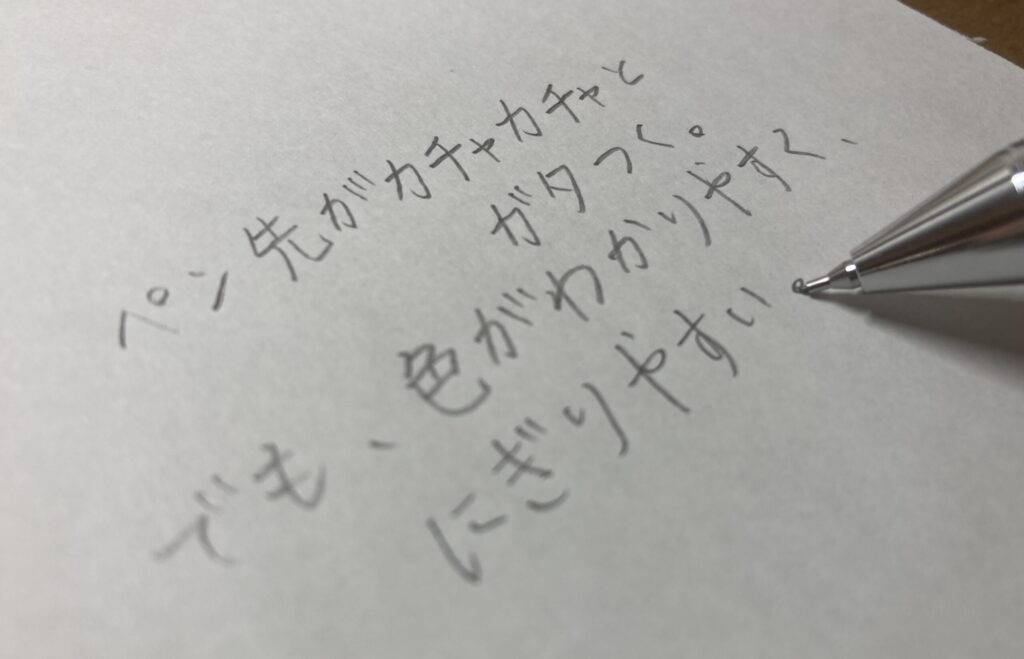 ペン先がカチャカチャと
ガタつく。
でも、色がわかりやすく、
にぎりやすい。